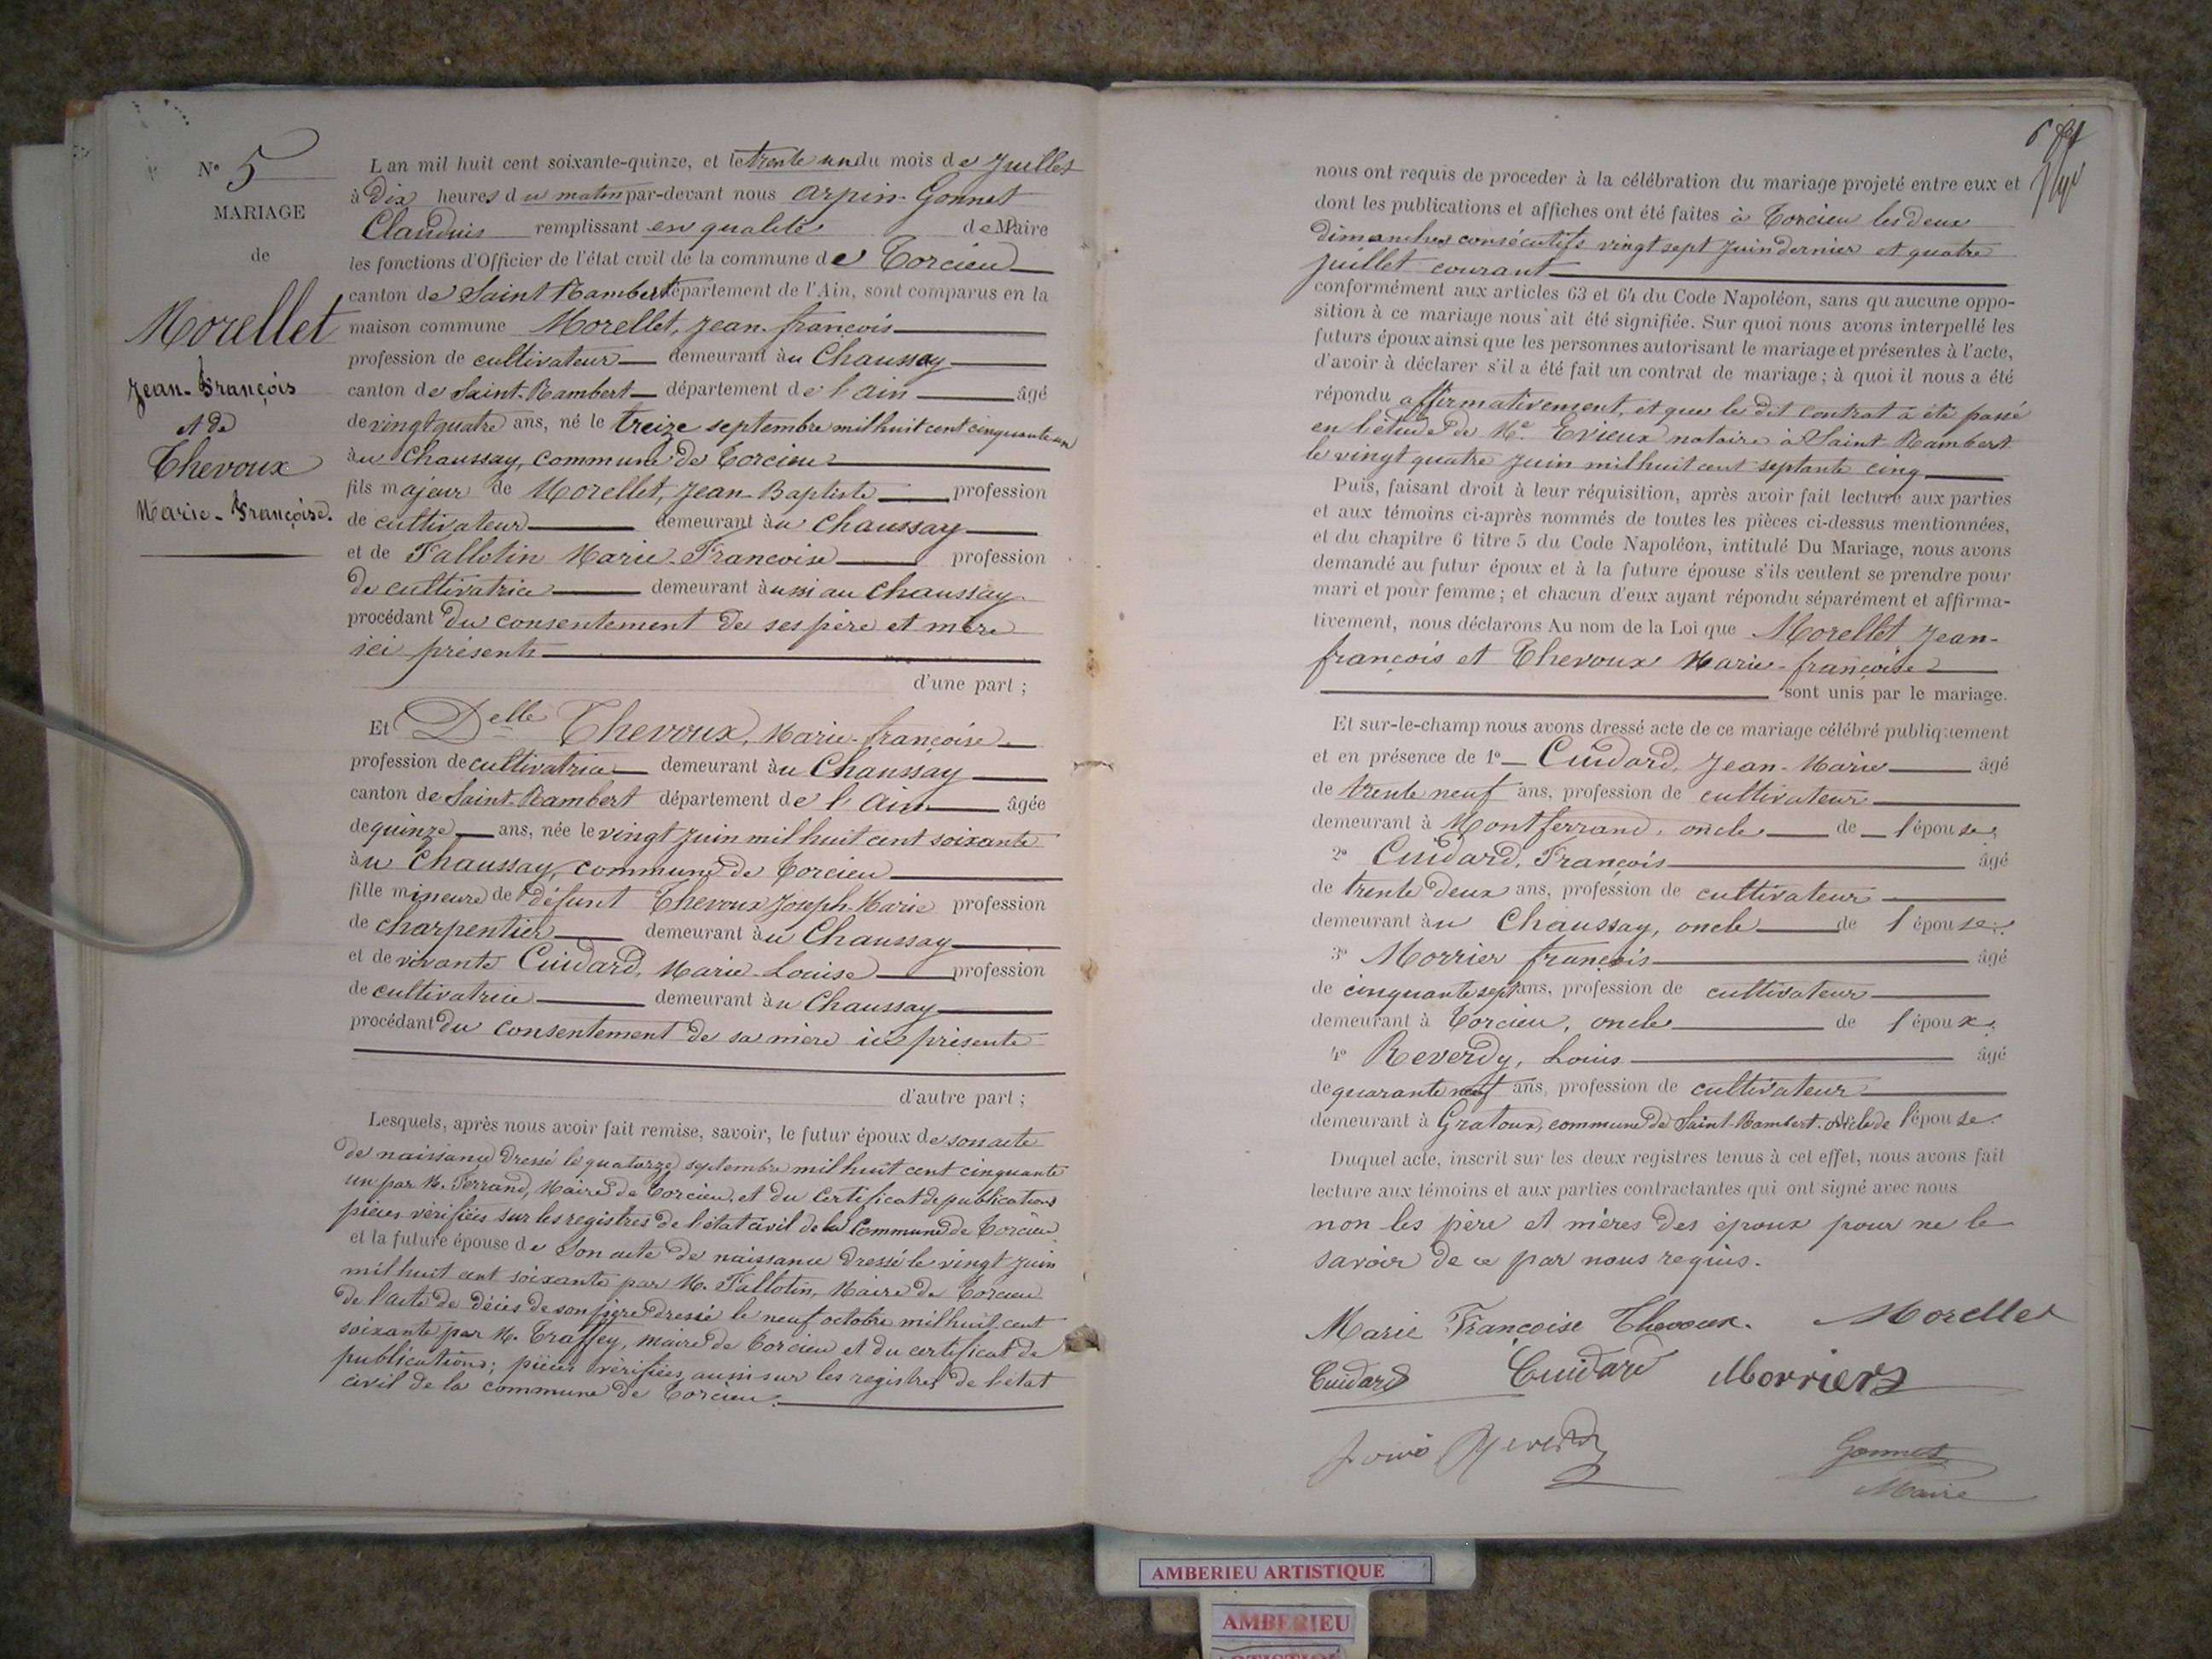 N° 5
MARIAGE
de
Morellet
Jean-François
et de
Thevoux
Marie-Françoise.
L'an mil huit cent soixante-quinze, et le trente un du mois de Juillet
à Dix heures du matin par-devant nous Arpin-Gonnet
Claudius remplissant en qualité de Maire
les fonctions d'Officier de l'état civil de la commune de Torcieu
canton de Saint Rambert département de l'Ain, sont comparus en la
maison commune Morellet, Jean-françois
profession de cultivateur demeurant àu Chaussay
canton de Saint-Rambert département de l'ain âgé
de vingt quatre ans, né le treize septembre mil huit cent cinquante un
àu Chaussay, commune de Torcieu
fils majeur de Morellet, Jean-Baptiste profession
de cultivateur demeurant àu Chaussay
et de Fallotin Marie-Francoise profession
de cultivatrice demeurant àussi au Chaussay
procédant du consentement de ses père et mère
ici présents
d'une part ;
Et Delle Thevoux, Marie-françoise
profession de cultivatrice demeurant àu Chaussay
canton de Saint-Rambert département de l'Ain âgée
de quinze ans, née le vingt juin mil huit cent soixante
àu Chaussay, commune de Torcieu
fille mineure de défunt Thevoux Joseph-Marie profession
de charpentier demeurant àu Chaussay
et de vivante Cuidard, Marie-Louise profession
de cultivatrice demeurant àu Chaussay
procédant du consentement de sa mère ici présente
d'autre part ;
Lesquels, après nous avoir fait remise, savoir, le futur époux de son acte
de naissance dressé le quatorze septembre mil huit cent cinquante
un par M. Ferrand, Maire de Torcieu, et du Certificat de publications
pièces vérifiées sur les registres de l'état civil de la Commune de Torcieu
et la future épouse de Son acte de naissance dressé le vingt juin
mil huit cent soixante par M. Fallotin, Maire de Torcieu
de l'acte de décès de son père dressé le neuf octobre mil huit cent
soixante par M. Traffey, maire de Torcieu et du certificat de
publications ; pièces vérifiées aussi sur les registres de l'état
civil de la commune de Torcieu.
nous ont requis de proceder à la célébration du mariage projeté entre eux et
dont les publications et affiches ont été faites à Torcieu les deux
dimanches consécutifs vingt sept juin dernier et quatre
juillet courant
conformément aux articles 63 et 64 du Code Napoléon, sans qu'aucune oppo-
sition à ce mariage nous ait été signifiée. Sur quoi nous avons interpellé les
futurs époux ainsi que les personnes autorisant le mariage et présentes à l'acte,
d'avoir à déclarer s'il a été fait un contrat de mariage ; à quoi il nous a été
répondu affirmativement, et que le dit contrat a été passé
en l'étude de Me Evieux notaire à Saint Rambert
le vingt quatre juin mil huit cent septante cinq
Puis, faisant droit à leur réquisition, après avoir fait lecture aux parties
et aux témoins ci-après nommés de toutes les pièces ci-dessus mentionnées,
et du chapitre 6 titre 5 du Code Napoléon, intitulé Du Mariage, nous avons
demandé au futur époux et à la future épouse s'ils veulent se prendre pour
mari et pour femme ; et chacun d'eux ayant répondu séparément et affirma-
tivement, nous déclarons Au nom de la Loi que Morellet Jean-
françois et Thevoux Marie-françoise
sont unis par le mariage.
Et sur-le-champ nous avons dressé acte de ce mariage célébré publiquement
et en présence de 1° Cuidard, Jean-Marie âgé
de trente neuf ans, profession de cultivateur
demeurant à Montferrand, oncle de l'épouse,
2° Cuidard, François âgé
de trente deux ans, profession de cultivateur
demeurant àu Chaussay, oncle de l'épouse ;
3° Morrier françois âgé
de cinquante sept ans, profession de cultivateur
demeurant à Torcieu, oncle de l'époux ;
4° Reverdy, Louis âgé
de quarante neuf ans, profession de cultivateur
demeurant à Gratoux, commune de Saint-Rambert, oncle de l'épouse.
Duquel acte, inscrit sur les deux registres tenus à cet effet, nous avons fait
lecture aux témoins et aux parties contractantes qui ont signé avec nous
non les père et mères des époux pour ne le
savoir de ce par nous requis.
Marie Françoise Thevoux. Morellet
Cuidard Cuidard Morrier
Louis Reverdy
Gonnet
Maire
AMBERIEU ARTISTIQUE
AMBERIEU
ARTISTIQUE